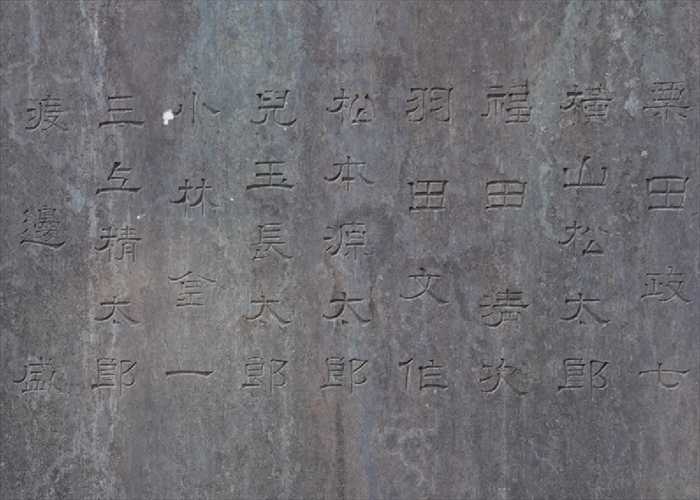 粟田政七
横山松太郎
福田清次
羽田文作
松本源太郎
兒玉長太郎
小林金一
三上精太郎
邊盛